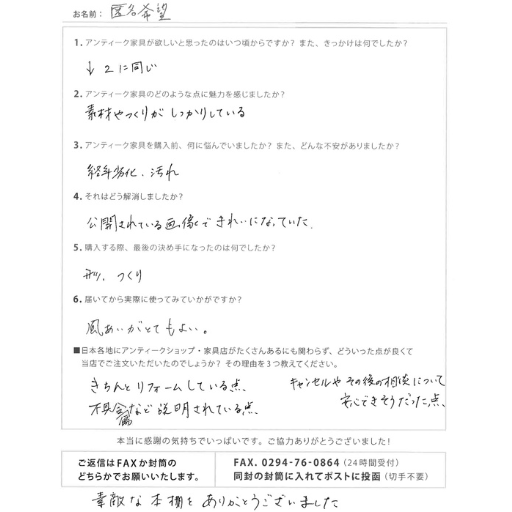 お名前： 匿名希望
1. アンティーク家具が欲しいと思ったのはいつ頃からですか？ また、きっかけは何でしたか？
↓ 2に同じ
2. アンティーク家具のどのような点に魅力を感じましたか？
素材やつくりが しっかりしている
3. アンティーク家具を購入前、何に悩んでいましたか？ また、どんな不安がありましたか？
経年劣化、汚れ
4. それはどう解消しましたか？
公開されている画像できれいになっていた.
5. 購入する際、最後の決め手になったのは何でしたか？
形、つくり
6. 届いてから実際に使ってみていかがですか？
風あいがとてもよい。
■日本各地にアンティークショップ・家具店がたくさんあるにも関わらず、どういった点が良くて
当店でご注文いただいたのでしょうか？ その理由を3つ教えてください。
きちんとリフォームしている点、
不具合など説明されている点、
キャンセルや その後の相談について
安心できそうだった点、
本当に感謝の気持ちでいっぱいです。ご協力ありがとうございました！
ご返信はFAXか封筒の
どちらかでお願いいたします。
FAX. 0294-76-0864 (24時間受付)
同封の封筒に入れてポストに投函 (切手不要)
素敵な本棚を ありがとうございました